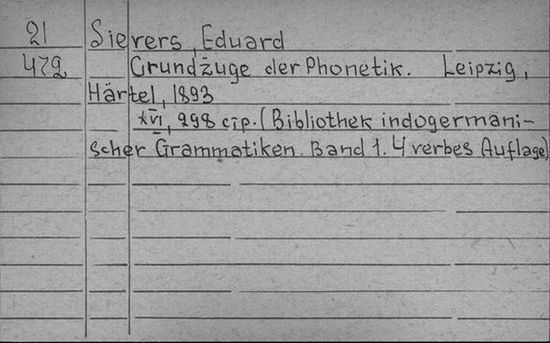 21 Sievers, Eduard
472 Grundzuge der Phonetik. Leipzig,
Härtel, 1893
XVI, 298 стр. (Bibliothek indogermani-
scher Grammatiken. Band 1. 4 verbes Auflage)